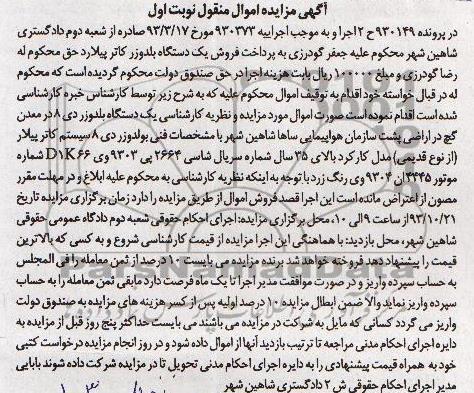 آگهی مزایده اموال منقول نوبت اول
در پرونده ۹۳۰۱۴۹ ح ۲ اجرا و به موجب اجراییه ۹۳۰۳۷۳ مورخ ۹۳/۳/۱۷ صادره از شعبه دوم دادگستری
شاهین شهر محکوم علیه جعفر گودرزی به پرداخت فروش یک دستگاه بلدوزر کاتر پیلارد حق محکوم له
رضا گودرزی و مبلغ ۱۰۰۰۰۰ ریال بابت هزینه اجرا در حق صندوق دولت محکوم گردیده است که محکوم
له در قبال خواسته خود اقدام به توقیف اموال محکوم علیه که به شرح زیر توسط کارشناس خبره کارشناسی
شده است اقدام نموده است صورت اموال مورد مزایده و نظریه کارشناسی یک دستگاه بلدوزر دی ۸ در معدن
گچ در اراضی پشت سازمان هواپیمایی ساها شاهین شهر با مشخصات فنی بولدوزر دی ۸ سیستم کاتر پیلار
(از نوع قدیمی) مدل کارکرد بالای ۳۵ سال شماره سریال شاسی ۲۶۶۴ پی ۹۳۰۳ وی D۱K ۶۶ شماره
موتور ۳۴۴۵ ان ۹۳۰۴ وی رنگ زرد با توجه به اینکه نظریه کارشناسی به محکوم علیه ابلاغ و در مهلت مقرر
مصون از اعتراض مانده است این اجرا قصد فروش اموال از طریق مزایده را دارد زمان برگزاری مزایده تاریخ
۹۳/۱۰/۲۱ از ساعت ۹ الی ۱۰، محل برگزاری مزایده: اجرای احکام حقوقی شعبه دوم دادگاه عمومی حقوقی
شاهین شهر، محل بازدید: با هماهنگی این اجرا مزایده از قیمت کارشناسی شروع و به کسی که بالاترین
قیمت را پیشنهاد دهد فروخته خواهد شد برنده مزایده می بایست ۱۰ درصد از ثمن معامله را فی المجلس
به حساب سپرده واریز و در صورت موافقت مدیر اجرا تا یک ماه فرصت دارد مابقی ثمن معامله را به حساب
سپرده واریز نماید والا ضمن ابطال مزایده ۱۰ درصد اولیه پس از کسر هزینه های مزایده به صندوق دولت
واریز می گردد کسانی که مایل به شرکت در مزایده می باشند می بایست حداکثر پنج روز قبل از مزایده به
دایره اجرای احکام مدنی مراجعه تا ترتیب بازدید آنها از اموال داده شود و در روز انجام مزایده درخواست کتبی
خود به همراه قیمت پیشنهادی را به دایره اجرای احکام مدنی تحویل تا در مزایده شرکت داده شوند بابایی
مدیر اجرای احکام حقوقی ش ۲ دادگستری شاهین شهر
ParsNamadData